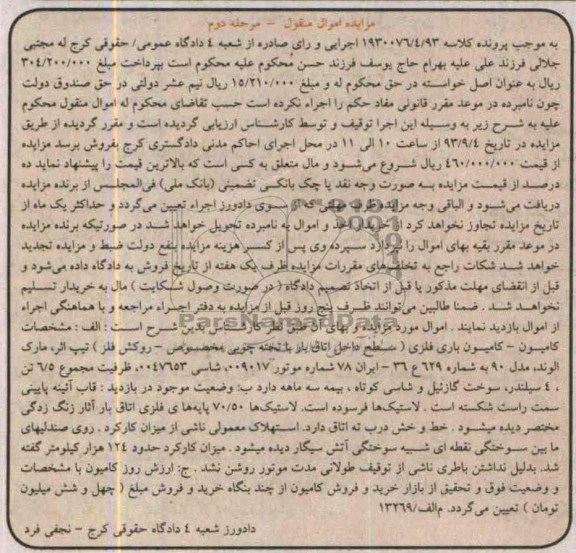 مزایده اموال منقول - مرحله دوم
به موجب پرونده کلاسه ۱۹۳۰۰۷۶/۴/۹۳ اجرایی و رای صادره از شعبه ۴ دادگاه عمومی/ حقوقی کرج له مجتبی
جلالی فرزند علی علیه بهرام حاج یوسف فرزند حسن محکوم علیه محکوم است بپرداخت مبلغ ۳۰۴/۲۰۰/۰۰۰
ریال به عنوان اصل خواسته در حق محکوم له و مبلغ ۱۵/۲۱۰/۰۰۰ ریال نیم عشر دولتی در حق صندوق دولت
چون نامبرده در موعد مقرر قانونی مفاد حکم را اجراء نکرده است حسب تقاضای محکوم له اموال منقول محکوم
علیه به شرح زیر به وسیله این اجرا توقیف و توسط کارشناس ارزیابی گردیده است و مقرر گردیده از طریق
مزایده در تاریخ ۹۳/۹/۴ از ساعت ۱۰ الی ۱۱ در محل اجرای احکام مدنی دادگستری کرج بفروش برسد مزایده
از قیمت ۴۶۰/۰۰۰/۰۰۰ ریال شروع می‌شود و مال متعلق به کسی است که بالاترین قیمت را پیشنهاد نماید ده
درصد از قیمت مزایده به صورت وجه نقد یا چک بانکی تضمینی (بانک ملی) فی‌المجلس از برنده مزایده
دریافت می‌شود و الباقی وجه مزایده ظرف مهلتی که از سوی دادورز اجراء تعیین می‌گردد و حداکثر یک ماه از
تاریخ مزایده تجاوز نخواهد کرد از اخذ و اموال به نامبرده تحویل خواهد شد در صورتیکه برنده مزایده
در موعد مقرر بقیه بهای اموال را نپردازد سپرده وی پس از کسر هزینه مزایده بنفع دولت ضبط و مزایده تجدید
خواهد شد شکات راجع به تخلف‌های مقررات مزایده ظرف یک هفته از تاریخ فروش به دادگاه داده می‌شود و
قبل از انقضای مهلت مذکور یا قبل از اتخاذ تصمیم دادگاه (در صورت وصول شکایت) مال به خریدار تسلیم
نخواهد شد. ضمنا طالبین می‌توانند ظرف پنج روز قبل از مزایده به دفتر اجراء مراجعه و با هماهنگی اجراء
از اموال بازدید نمایند. اموال مورد مزایده و بهای آن طبق نظر کارشناس بدین شرح است: الف: مشخصات
کامیون - کامیون باری فلزی (سطح داخل اتاق بار با تخته چوبی مخصوص - روکش فلز) تیپ اثر، مارک
الوند، مدل ۹۰ به شماره ۶۲۹ ع ۳۶ - ایران ۷۸ شماره موتور ۰۰۹۰۱۷، شاسی ۰۰۴۷۶۵۳، ظرفیت مجموع ۶/۵ تن
، ۴ سیلندر، سوخت گازئیل و شاسی کوتاه، بیمه سه ماهه دارد ب: وضعیت موجود در بازدید: قاب آئینه پایینی
سمت راست شکسته است. لاستیک‌ها فرسوده است. لاستیک‌ها ۷۰/۵۰ پایه‌ها ی فلزی اتاق بار آثار زنگ زدگی
مختصر دیده میشود. خط و خش درب ته اتاق دارد. استهلاک معمولی ناشی از میزان کارکرد. روی صندلیهای
ما بین سوختگی نقطه ای شبیه سوختگی آتش سیگار دیده میشود. میزان کارکرد حدود ۱۲۴ هزار کیلومتر گفته
شد. بدلیل نداشتن باطری ناشی از توقیف طولانی مدت موتور روشن نشد. ج: ارزش روز کامیون با مشخصات
و وضعیت فوق و تحقیق از بازار خرید و فروش کامیون از چند بنگاه خرید و فروش مبلغ (چهل و شش میلیون
تومان) تعیین می‌گردد. م/الف/۱۳۲۶۹
دادورز شعبه ۴ دادگاه حقوقی کرج - نجفی فرد